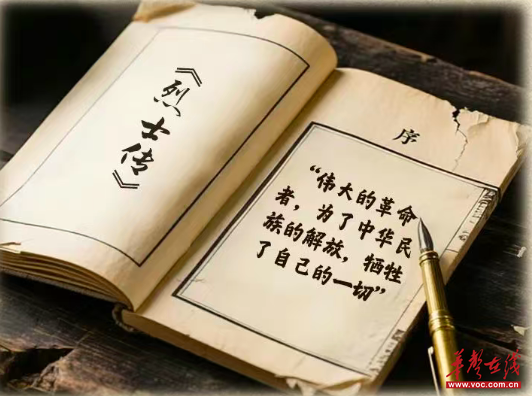 《烈士传》
序
“伟大的革命
者，为了中华民
族的解放，牺牲
了自己的一切”
华声在线
www.voc.com.cn